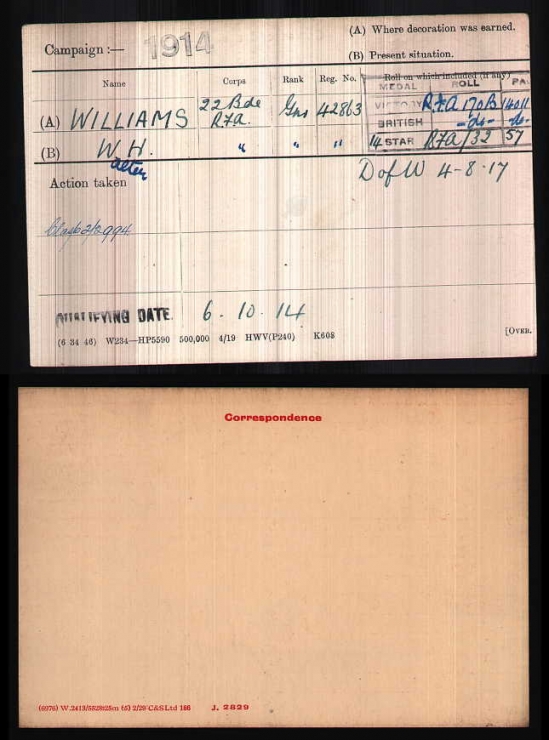 (A) Where decoration was earned.
Campaign :— 1914
(B) Present situation.
Name Corps Rank Reg. No. Roll on which included (if any)
MEDAL ROLL PA
(A) WILLIAMS 22 Bde R.F.A. Gnr 42863 VICTORY RFA 170B
BRITISH -do- -do-
(B) W.H. " " " 14 STAR RFA/32 57
Action taken
D of W 4-8-17
QUALIFYING DATE. 6.10.14
(6 34 46) W234—HP5590 500,000 4/19 HWV(P240) K608 [OVER.
Correspondence
(6976) W.2413/5529 25m (5) 2/29 C&S Ltd 186 J. 2829